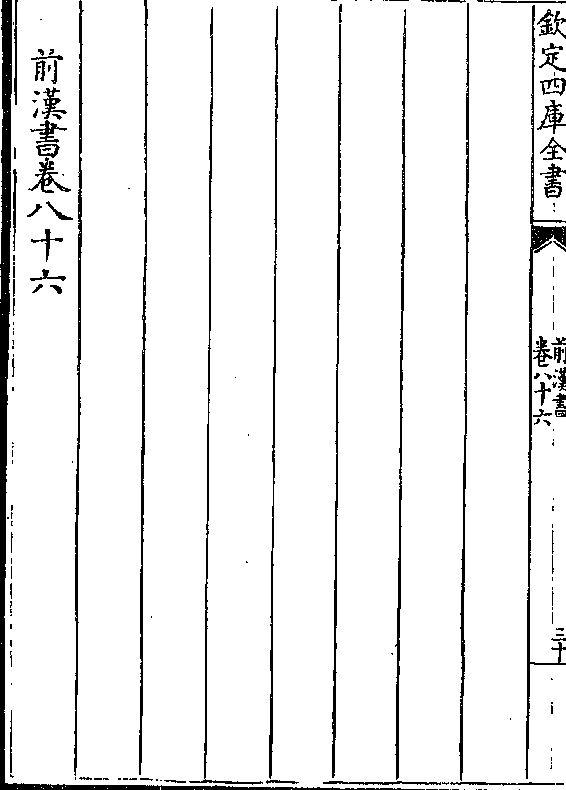 欽定四庫全書
前漢書
卷八十六
三十
前漢書卷八十六